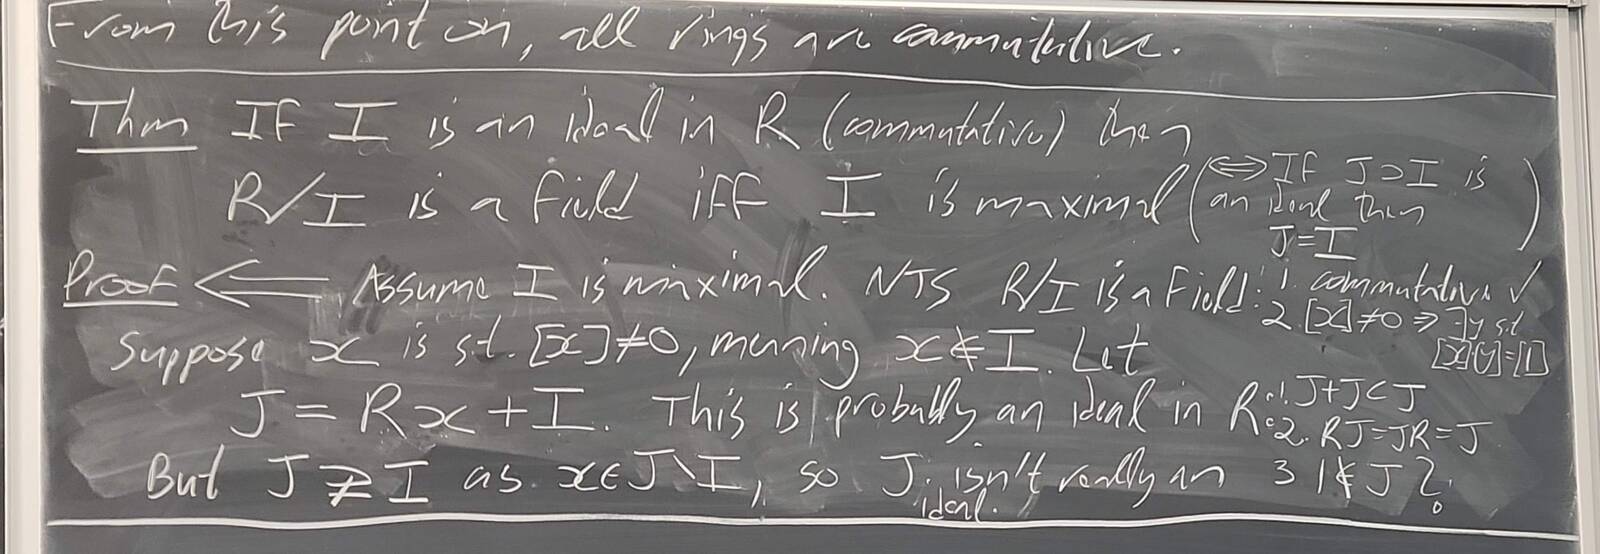 From this point on, all rings are commutative.
Thm IF I is an ideal in R (commutative) then
R/I is a field iff I is maximal (⟺ If J⊃I is
an ideal then
J=I)
Proof ⟸ Assume I is maximal. NTS R/I is a Field: 1. commutative ✓
2. [x]≠0 ⇒ ∃y s.t.
[x][y]=[1]
Suppose x is s.t. [x]≠0, meaning x∉I. Let
J = Rx + I. This is probably an ideal in R: 1. J+J⊂J
2. RJ=JR=J
But J⊋I as x∈J\I, so J isn't really an ideal. 3 1∉J ?